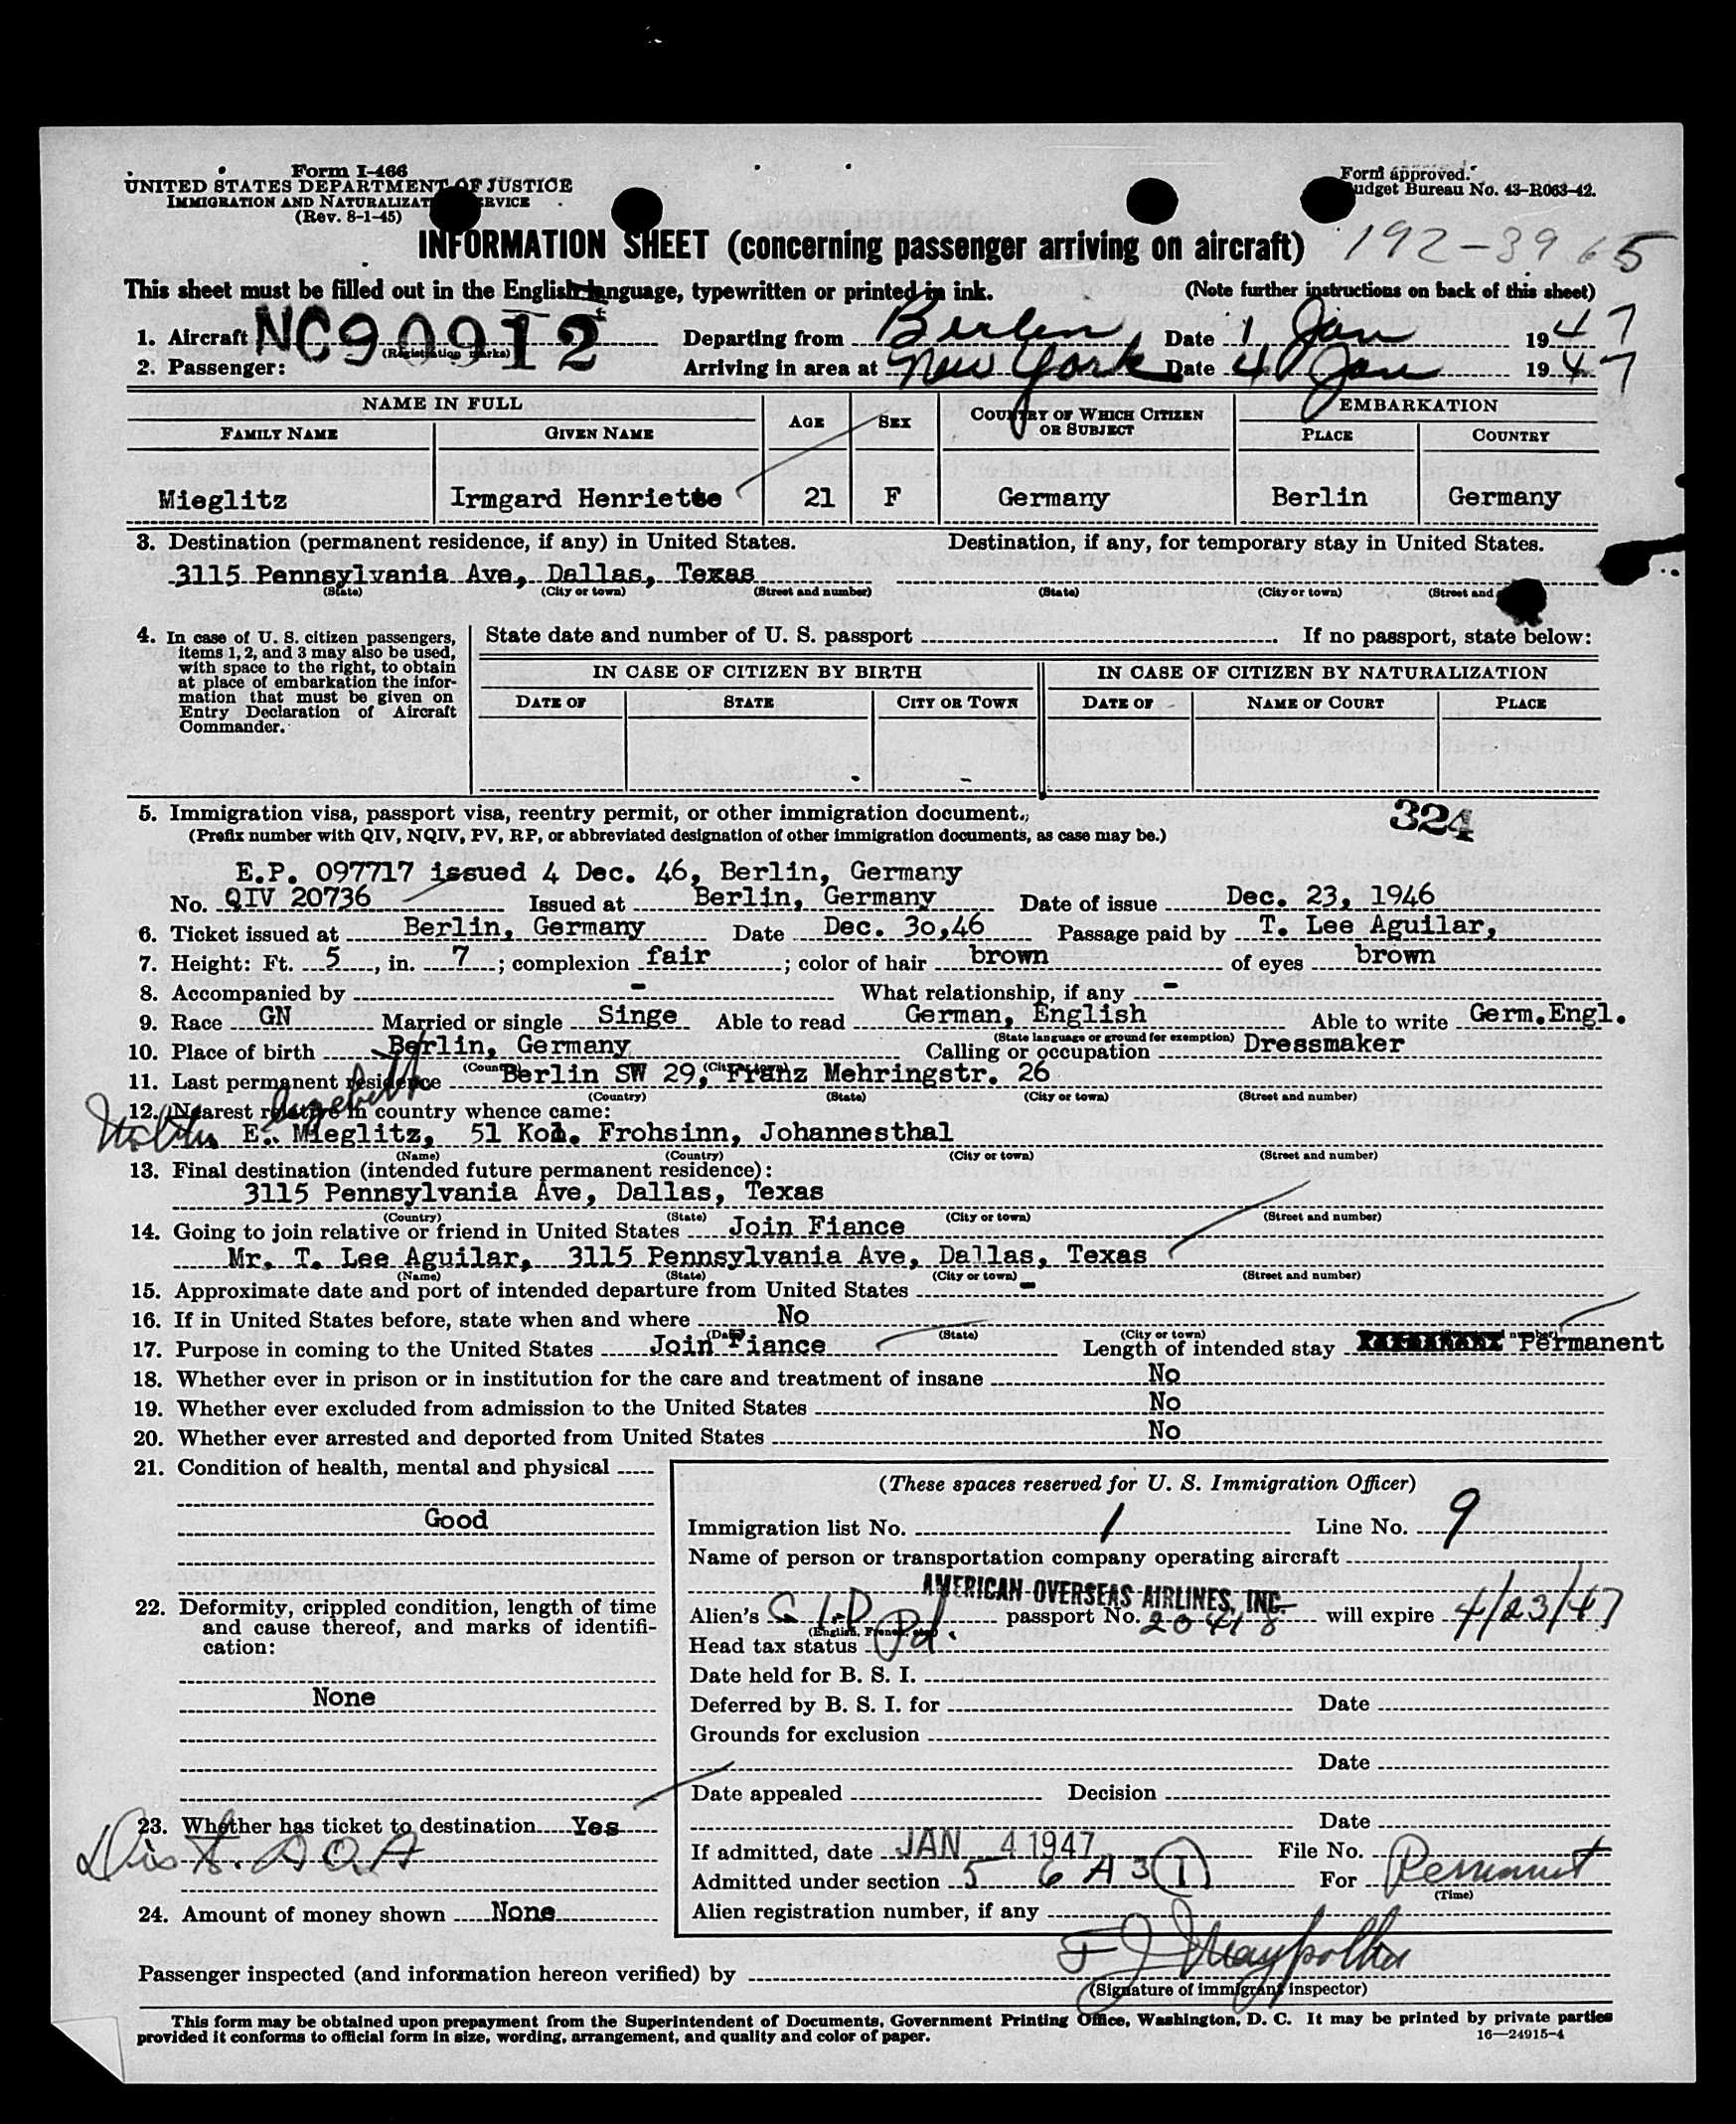 Form I-466
UNITED STATES DEPARTMENT OF JUSTICE
IMMIGRATION AND NATURALIZATION SERVICE
(Rev. 8-1-45)
Form approved.
Budget Bureau No. 43-R063-42.
INFORMATION SHEET (concerning passenger arriving on aircraft) 192-3965
This sheet must be filled out in the English language, typewritten or printed in ink. (Note further instructions on back of this sheet)
1. Aircraft NC90912 Departing from Berlin Date 1 Jan 1947
(Registration marks)
2. Passenger: Arriving in area at New York Date 4 Jan 1947
NAME IN FULL AGE SEX COUNTRY OF WHICH CITIZEN OR SUBJECT EMBARKATION
FAMILY NAME GIVEN NAME PLACE COUNTRY
Mieglitz Irmgard Henriette 21 F Germany Berlin Germany
3. Destination (permanent residence, if any) in United States. Destination, if any, for temporary stay in United States.
3115 Pennsylvania Ave, Dallas, Texas
(State) (City or town) (Street and number) (State) (City or town) (Street and
4. In case of U. S. citizen passengers, items 1, 2, and 3 may also be used, with space to the right, to obtain at place of embarkation the information that must be given on Entry Declaration of Aircraft Commander.
State date and number of U. S. passport If no passport, state below:
IN CASE OF CITIZEN BY BIRTH IN CASE OF CITIZEN BY NATURALIZATION
DATE OF STATE CITY OR TOWN DATE OF NAME OF COURT PLACE
5. Immigration visa, passport visa, reentry permit, or other immigration document. 324
(Prefix number with QIV, NQIV, PV, RP, or abbreviated designation of other immigration documents, as case may be.)
E.P. 097717 issued 4 Dec. 46, Berlin, Germany
No. QIV 20736 Issued at Berlin, Germany Date of issue Dec. 23, 1946
6. Ticket issued at Berlin, Germany Date Dec. 30,46 Passage paid by T. Lee Aguilar,
7. Height: Ft. 5, in. 7; complexion fair; color of hair brown of eyes brown
8. Accompanied by - What relationship, if any -
9. Race GN Married or single Singe Able to read German, English Able to write Germ.Engl.
(State language or ground for exemption)
10. Place of birth Berlin, Germany Calling or occupation Dressmaker
(Country) (City or town)
11. Last permanent residence Berlin SW 29, Franz Mehringstr. 26
(Country) (State) (City or town) (Street and number)
12. Nearest relative in country whence came:
E. Mieglitz, 51 Kol. Frohsinn, Johannesthal
(Name) (Country) (City or town) (Street and number)
13. Final destination (intended future permanent residence):
3115 Pennsylvania Ave, Dallas, Texas
(Country) (State) (City or town) (Street and number)
14. Going to join relative or friend in United States Join Fiance
Mr. T. Lee Aguilar, 3115 Pennsylvania Ave, Dallas, Texas
(Name) (State) (City or town) (Street and number)
15. Approximate date and port of intended departure from United States -
16. If in United States before, state when and where No
(Date) (State) (City or town) (Street and number)
17. Purpose in coming to the United States Join Fiance Length of intended stay Permanent
18. Whether ever in prison or in institution for the care and treatment of insane No
19. Whether ever excluded from admission to the United States No
20. Whether ever arrested and deported from United States No
21. Condition of health, mental and physical
Good
22. Deformity, crippled condition, length of time and cause thereof, and marks of identification:
None
23. Whether has ticket to destination Yes
24. Amount of money shown None
(These spaces reserved for U. S. Immigration Officer)
Immigration list No. 1 Line No. 9
Name of person or transportation company operating aircraft
AMERICAN OVERSEAS AIRLINES, INC.
Alien's passport No. 20418 will expire 4/23/47
(English, French, etc.)
Head tax status Pd.
Date held for B. S. I.
Deferred by B. S. I. for Date
Grounds for exclusion
Date
Date appealed Decision
Date
If admitted, date JAN 4 1947 File No.
Admitted under section 5 6 A 3 (1) For Permanent
(Time)
Alien registration number, if any
Passenger inspected (and information hereon verified) by
(Signature of immigrant inspector)
This form may be obtained upon prepayment from the Superintendent of Documents, Government Printing Office, Washington, D. C. It may be printed by private parties
provided it conforms to official form in size, wording, arrangement, and quality and color of paper. 16—24915-4